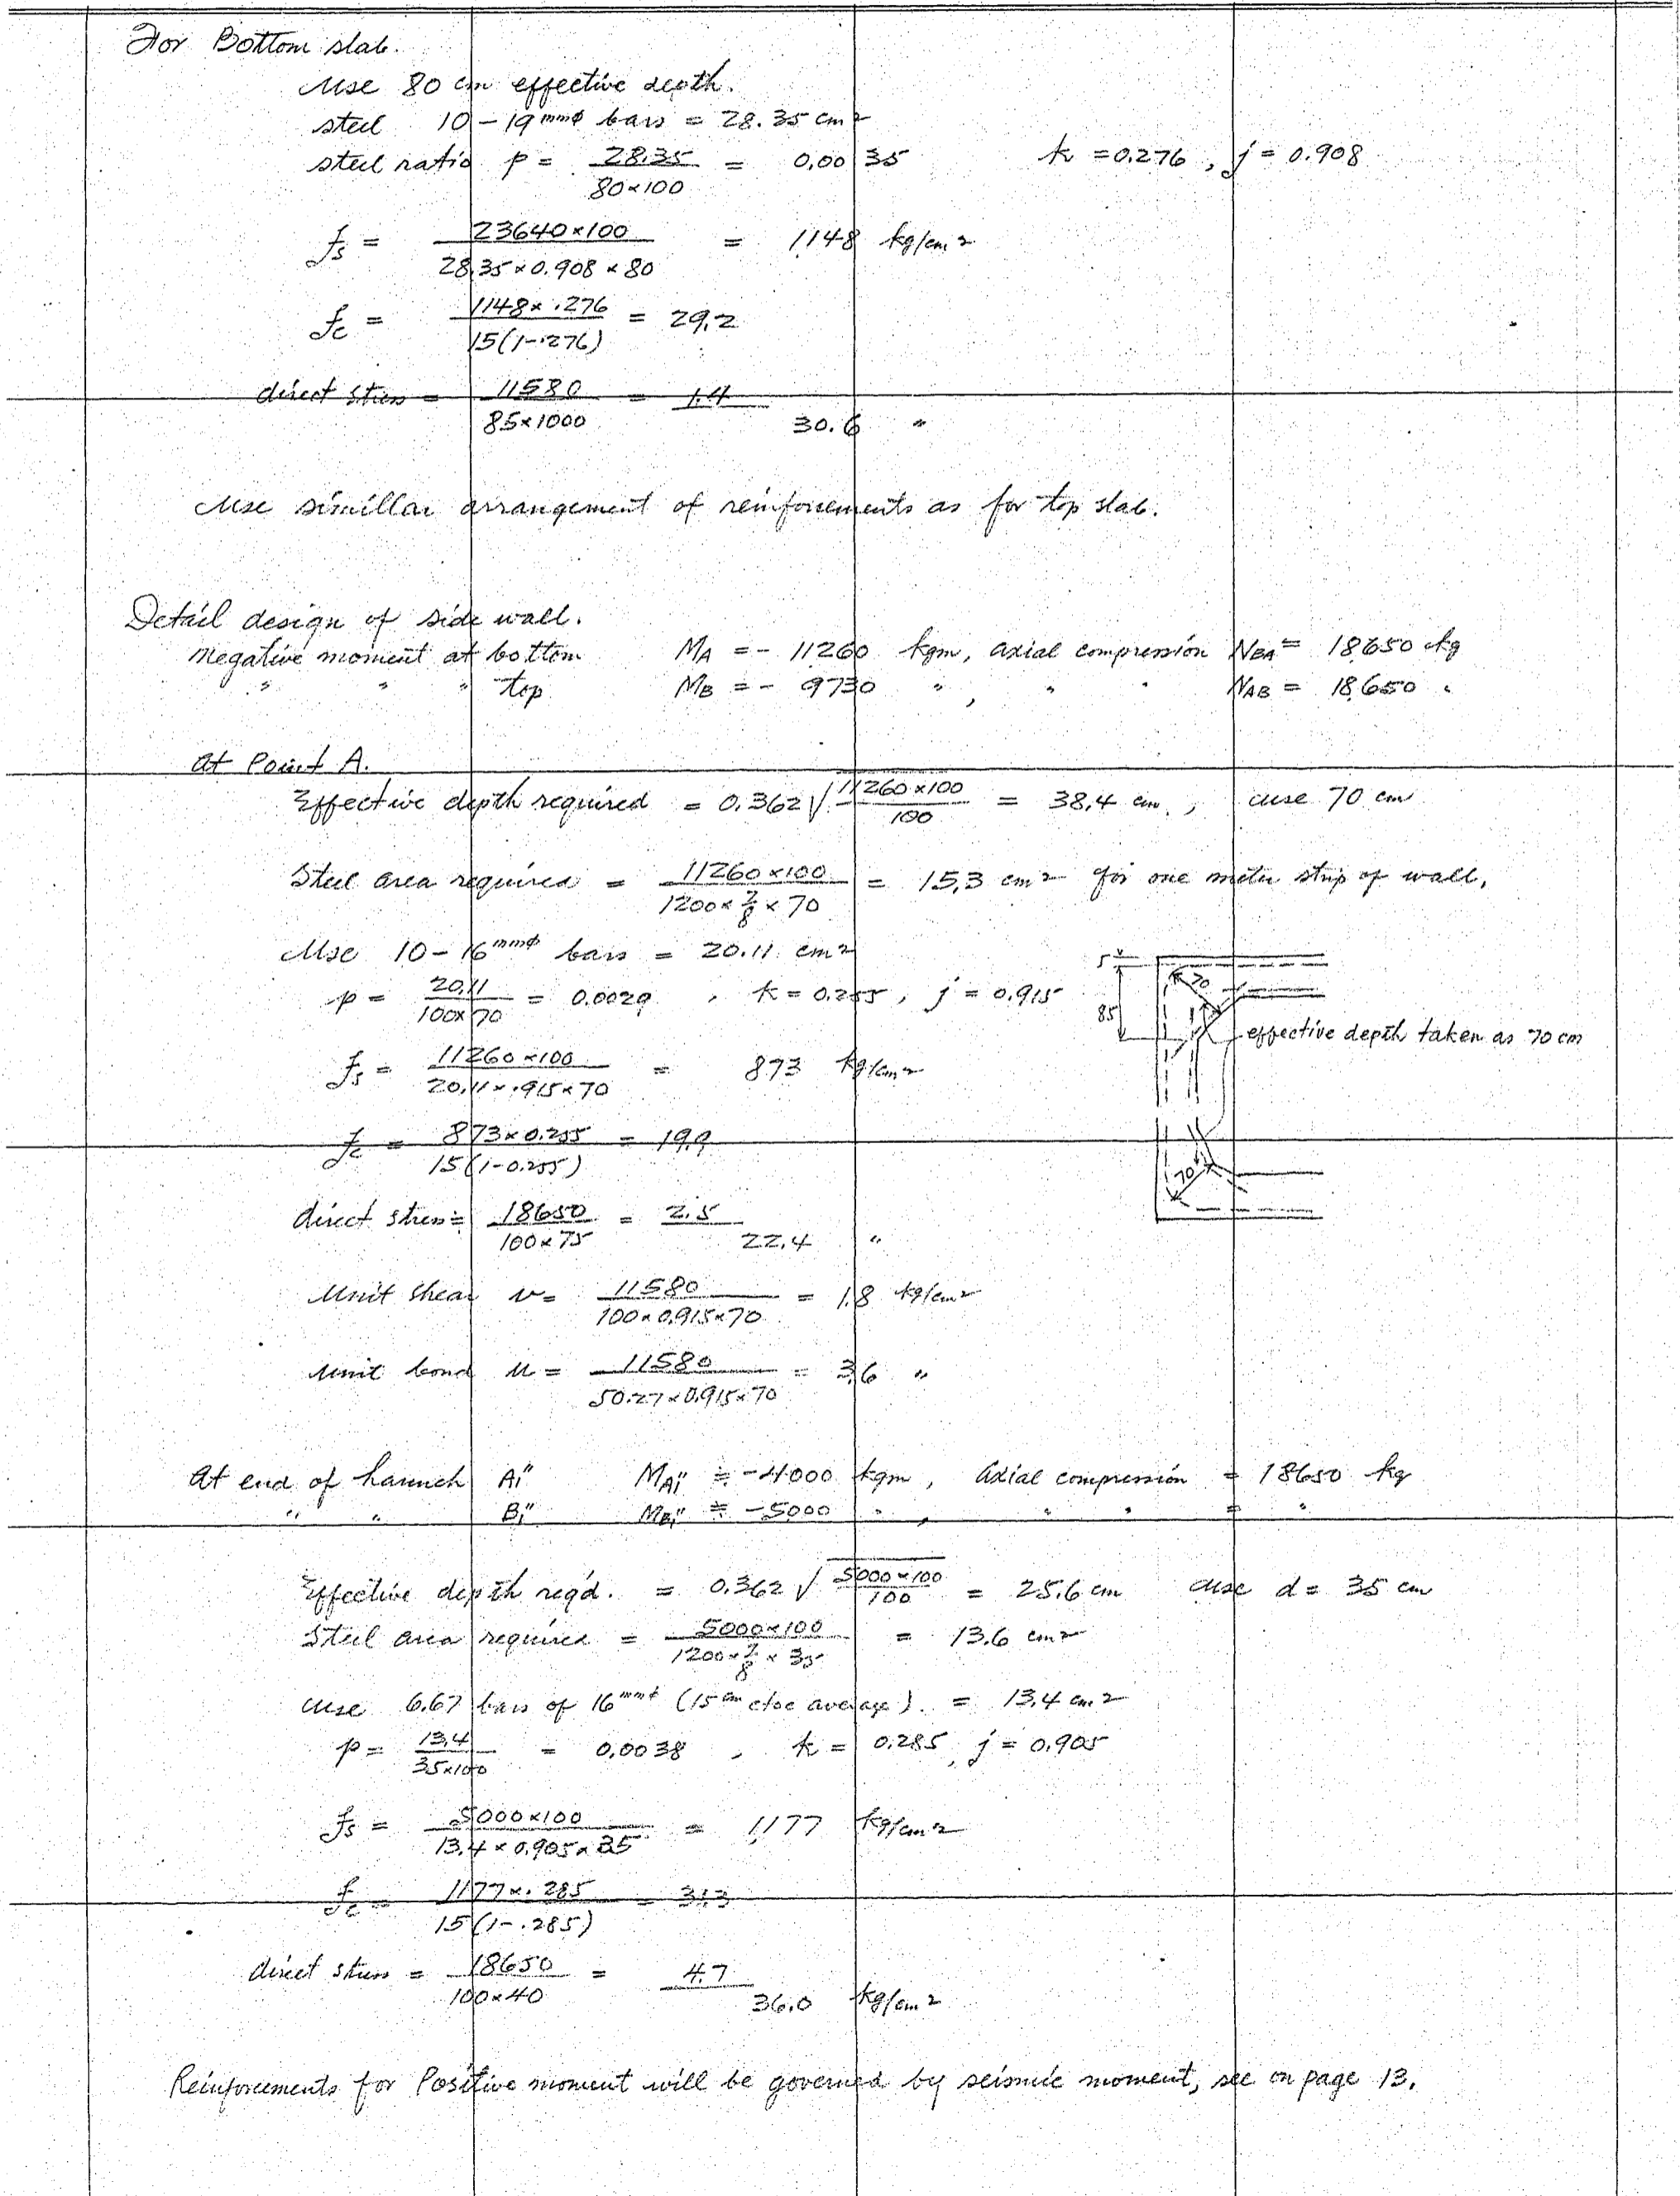 For Bottom slab.
Use 80 cm effective depth.
steel 10 - 19mmφ bars = 28.35 cm²
steel ratio p = 28.35 / 80×100 = 0.0035 k = 0.276, j = 0.908
fs = 23640×100 / 28.35×0.908×80 = 1148 kg/cm²
fc = 1148×.276 / 15(1-.276) = 29.2
direct stress = 11580 / 85×1000 = 1.4
30.6 〃
Use simillar arrangement of reinforcements as for top slab.
Detail design of side wall.
Negative moment at bottom MA = - 11260 kgm, axial compression NBA = 18650 kg
〃 〃 〃 top MB = - 9730 〃, 〃 〃 NAB = 18650 〃
At Point A.
Effective depth required = 0.362√11260×100 / 100 = 38.4 cm, use 70 cm
Steel area required = 11260×100 / 1200×7/8×70 = 15.3 cm² for one meter strip of wall.
Use 10 - 16mmφ bars = 20.11 cm²
p = 20.11 / 100×70 = 0.0029, k = 0.255, j = 0.915
5
70
85
effective depth taken as 70 cm
fs = 11260×100 / 20.11×.915×70 = 873 kg/cm²
fc = 873×0.255 / 15(1-0.255) = 19.9
70
direct stress = 18650 / 100×75 = 2.5
22.4 〃
Unit shear v = 11580 / 100×0.915×70 = 1.8 kg/cm²
Unit bond u = 11580 / 50.27×0.915×70 = 3.6 〃
At end of haunch A1" MA1" ≒ -4000 kgm, Axial compression = 18650 kg
〃 〃 B1" MB1" ≒ -5000 〃, 〃 〃 = 〃
Effective depth req'd. = 0.362√5000×100 / 100 = 25.6 cm use d = 35 cm
Steel area required = 5000×100 / 1200×7/8×35 = 13.6 cm²
Use 6.67 bars of 16mmφ (15cm ctoc average) = 13.4 cm²
p = 13.4 / 35×100 = 0.0038, k = 0.285, j = 0.905
fs = 5000×100 / 13.4×0.905×35 = 1177 kg/cm²
fc = 1177×.285 / 15(1-.285) = 31.3
direct stress = 18650 / 100×40 = 4.7
36.0 kg/cm²
Reinforcements for Positive moment will be governed by seismic moment, see on page 13.